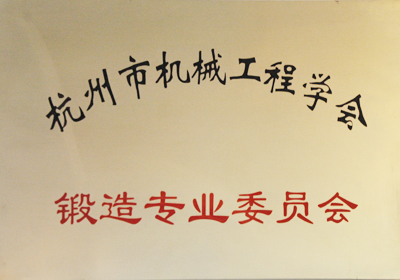 杭州市机械工程学会
锻造专业委员会